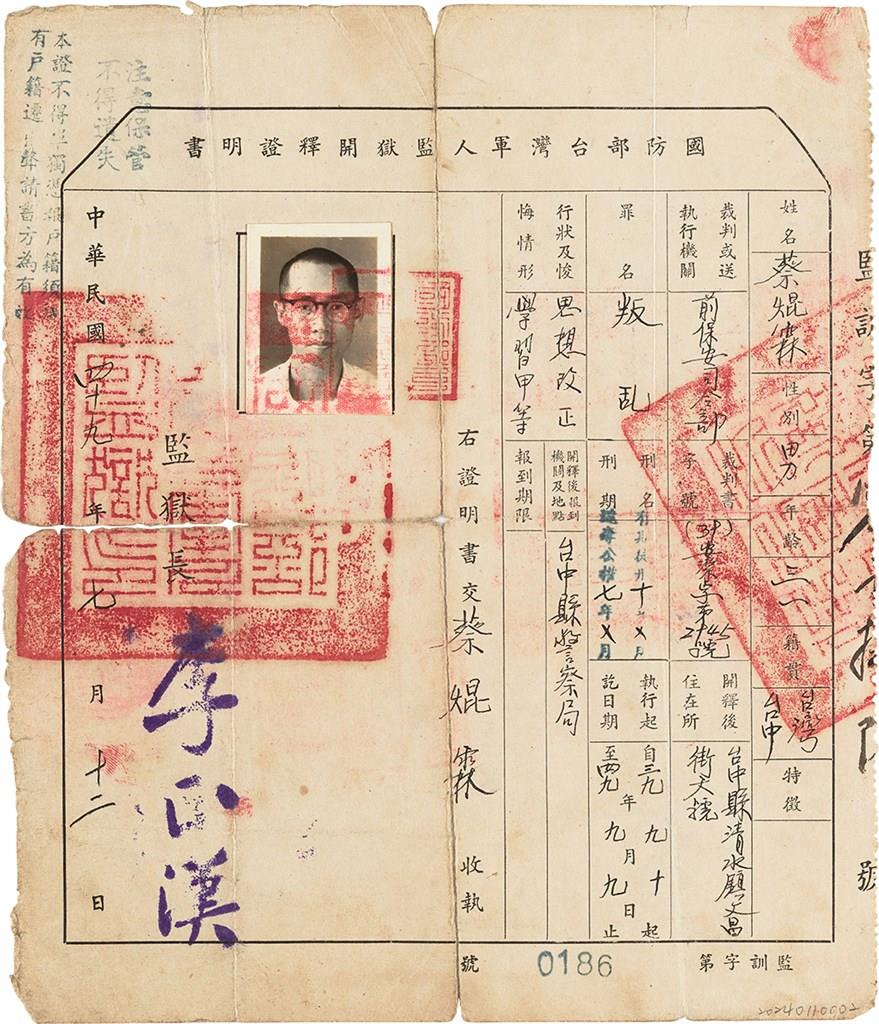 國防部台灣軍人監獄開釋證明書
姓名 蔡焜霖 性別 男 年齡 三一 籍貫 台灣台中 特徵
裁判或送執行機關 前保安司令部 裁判書字號 (39)安潔字第2945號 開釋後住在所 台中縣清水鎮文昌街
罪名 叛乱 刑名 有期徒刑十年X月 刑期 褫奪公權七年X月 執行起訖日期 自三九年九月十日起至四九年九月九日止
行狀及悛悔情形 思想改正 學習甲等
開釋後報到機關及地點 台中縣警察局
報到期限
右證明書交 蔡焜霖 收執
監獄長 李正漢
中華民國四十九年七月十二日
注意保管
不得遺失
本證不得單獨憑報戶籍須
有戶籍遷 聲請書方為有效
監訓字第
號
監訓字第 0186 號
2024011000